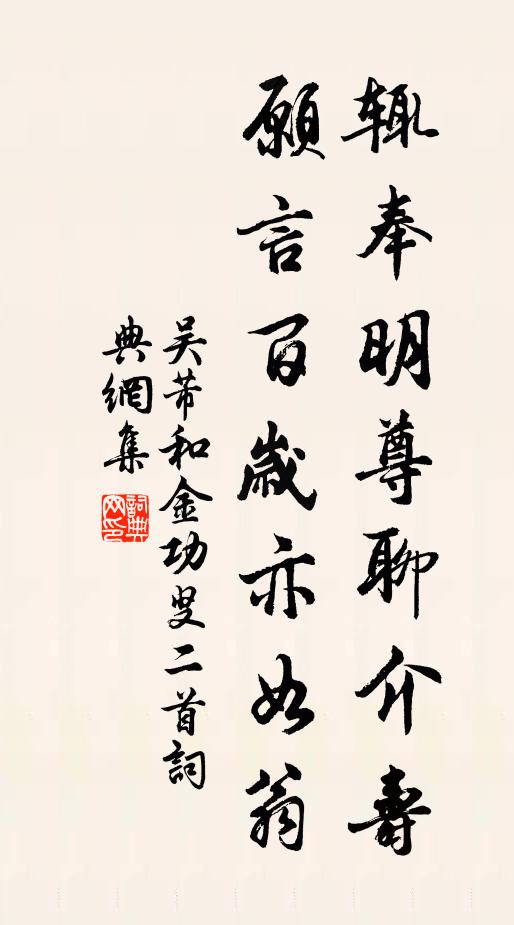 輒奉明尊聊介壽
願言百歲亦如翁
吴芾和金功叟二首詞
典網集
詞典網印